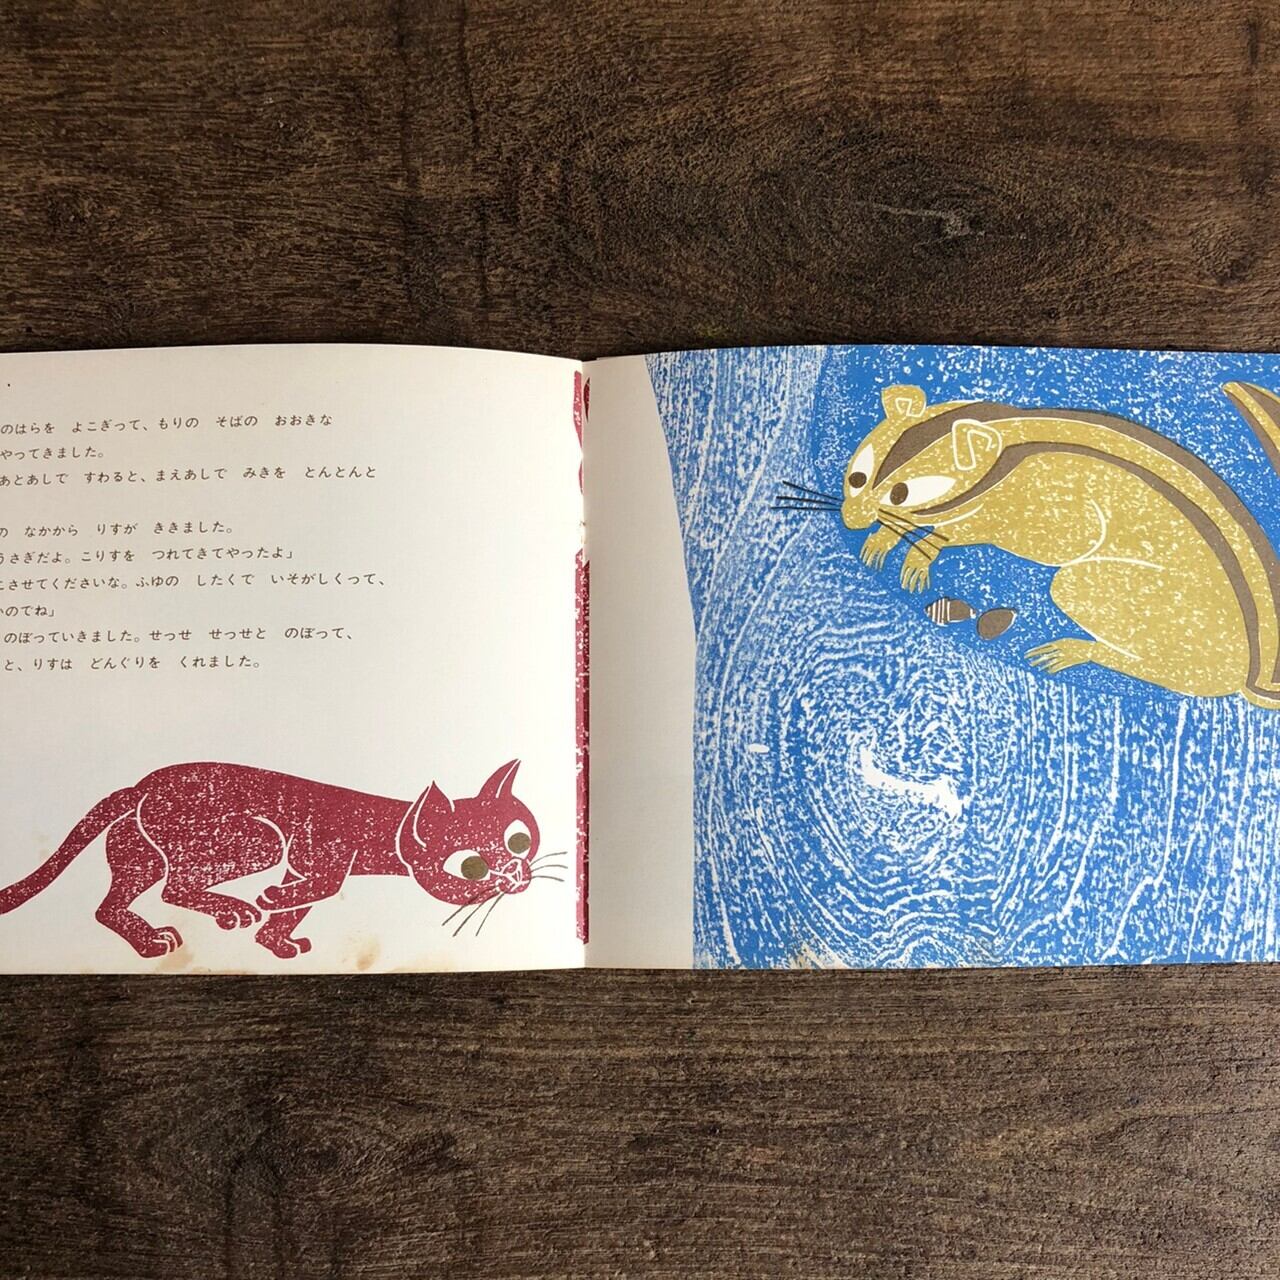 のはらを よこぎって、もりの そばの おおきな
やってきました。
あとあしで すわると、まえあしで みきを とんとんと
の なかから りすが ききました。
うさぎだよ。こりすを つれてきてやったよ」
こさせてくださいな。ふゆの したくで いそがしくって、
いのでね」
のぼっていきました。せっせ せっせと のぼって、
と、りすは どんぐりを くれました。